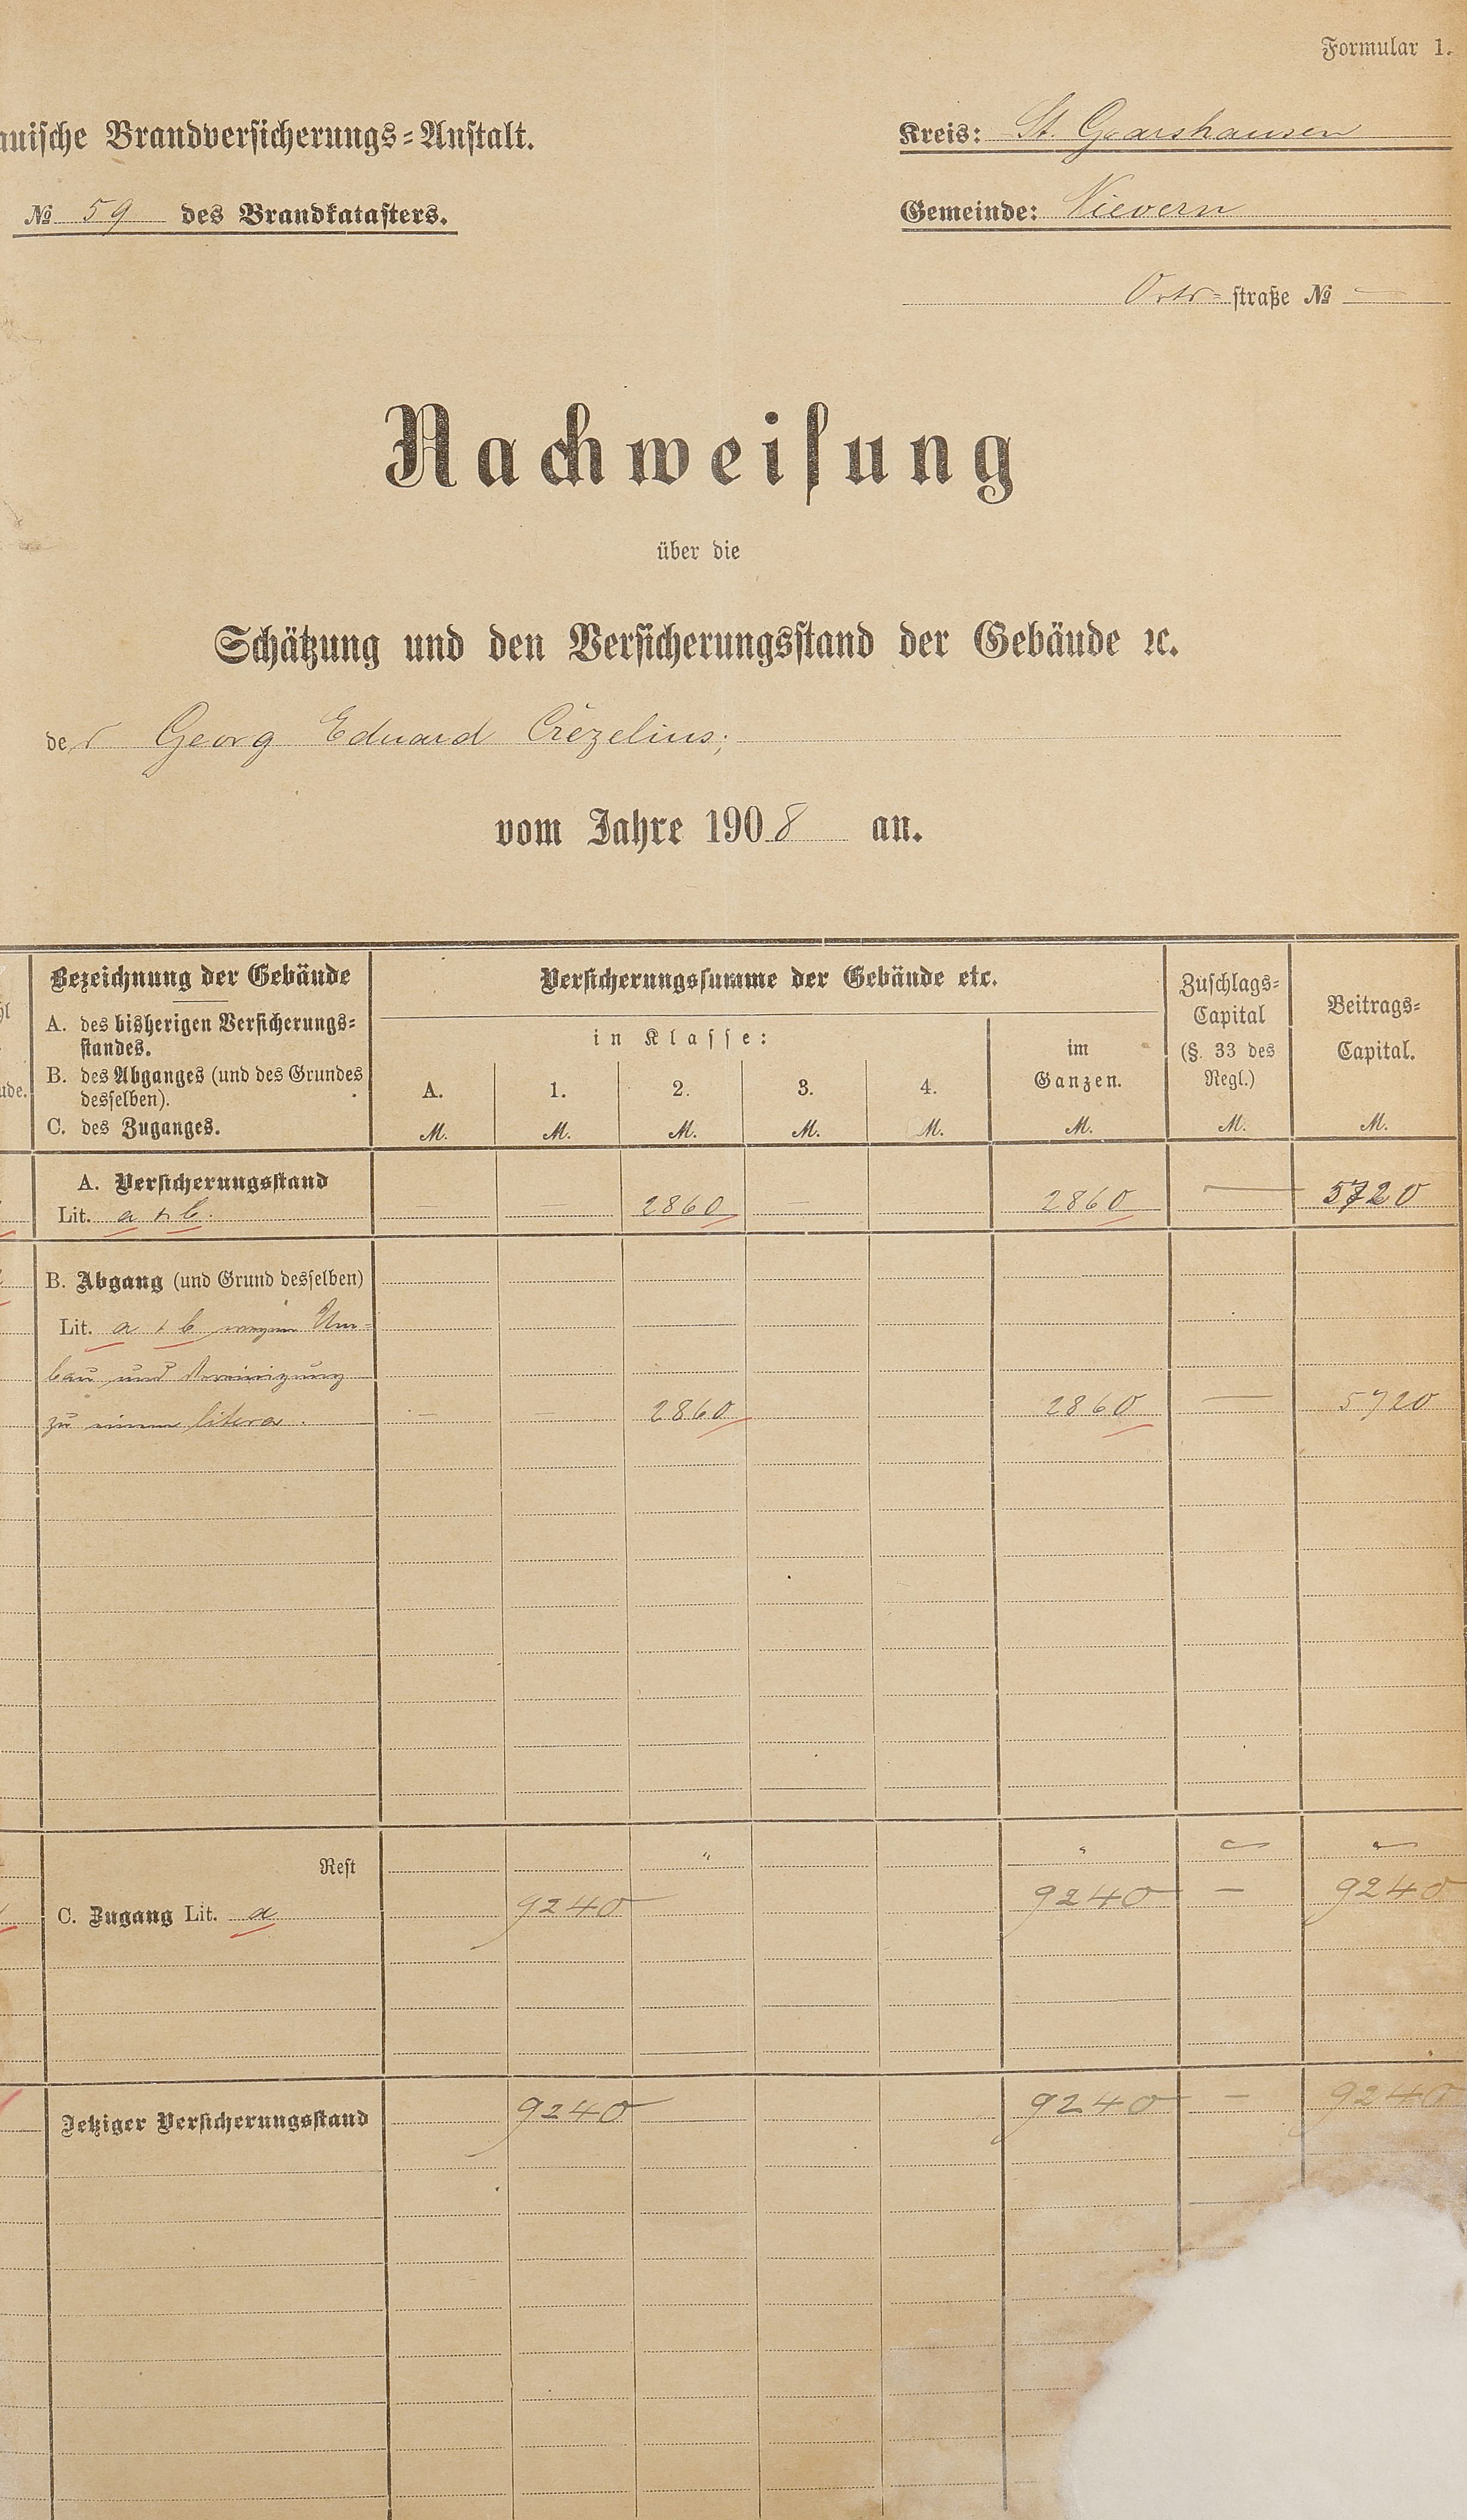 Formular 1.
nische Brandversicherungs-Anstalt.
Kreis: St. Goarshausen
№ 59 des Brandkatasters.
Gemeinde: Nievern
Orts- straße № —
Nachweisung
über die
Schätzung und den Versicherungsstand der Gebäude ꝛc.
der Georg Eduard Crezelius;
vom Jahre 1908 an.
Bezeichnung der Gebäude
A. des bisherigen Versicherungs-
standes.
B. des Abganges (und des Grundes
desselben).
C. des Zuganges.
Versicherungssumme der Gebäude etc.
in Klasse:
A. 1. 2. 3. 4.
im
Ganzen.
Zuschlags-
Capital
(§. 33 des
Regl.)
Beitrags-
Capital.
M. M. M. M. M. M. M. M.
A. Versicherungsstand
Lit. a + b. — — 2860 — 2860 — 5720
B. Abgang (und Grund desselben)
Lit. a + b wegen Um-
bau und Vereinigung
zu einem litera. — — 2860 2860 — 5720
Rest " " — "
C. Zugang Lit. a 9240 9240 — 9240
Jetziger Versicherungsstand 9240 9240 — 9240